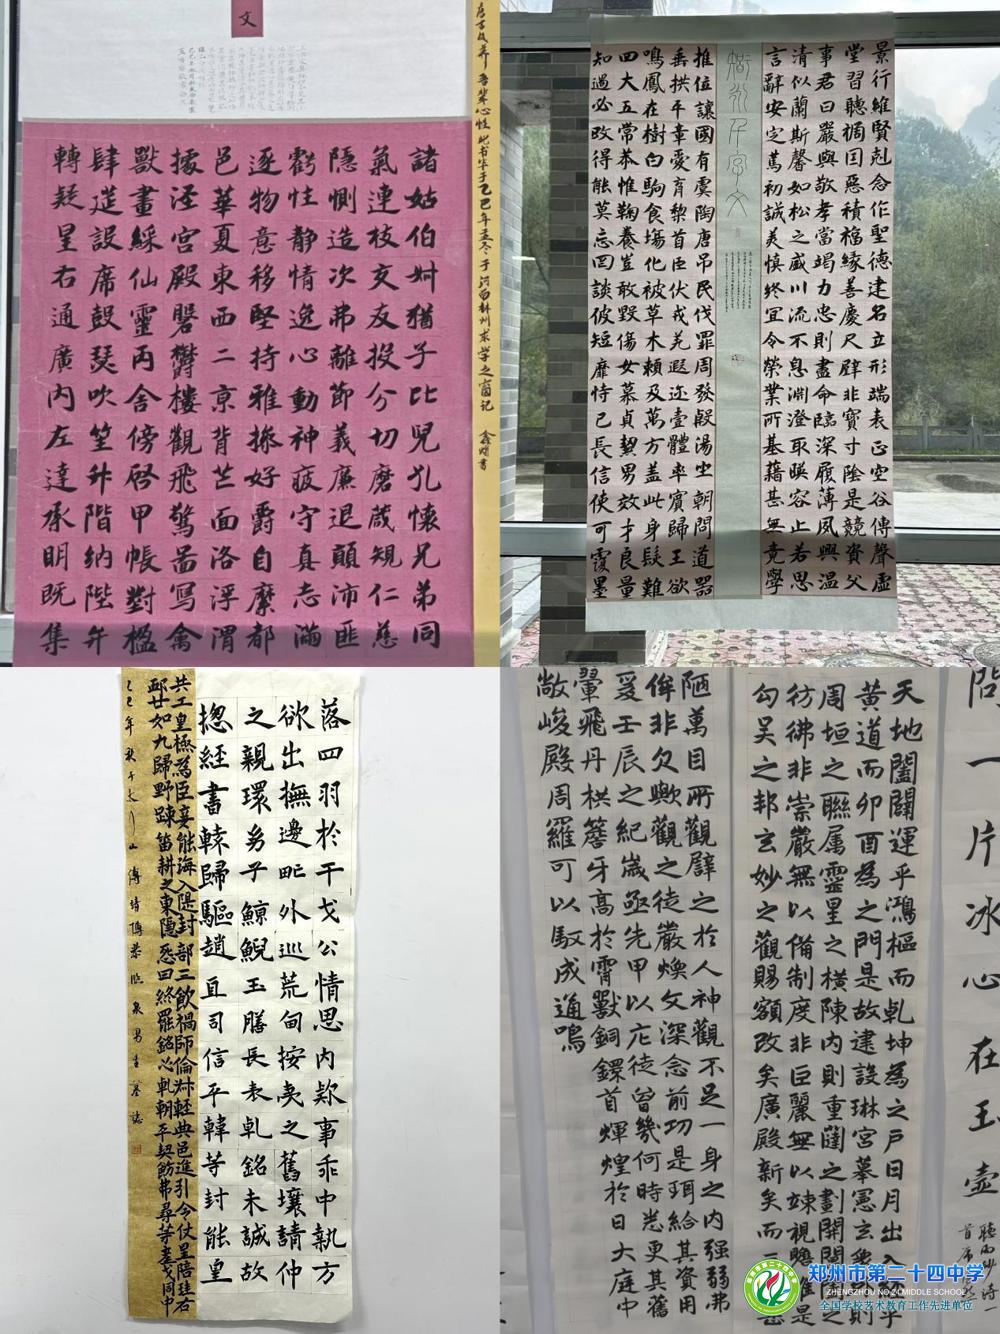 文
諸姑伯叔猶子比兒孔懷兄弟同
氣連枝交友投分切磨箴規仁慈
隱惻造次弗離節義廉退顛沛匪
虧性静情逸心動神疲守真志滿
逐物意移堅持雅操好爵自縻都
邑華夏東西二京背芒面洛浮渭
據涇宮殿磐鬱樓觀飛驚啚寫禽
獸畫綵仙靈丙舍傍啓甲帳對楹
肆筵設席鼓瑟吹笙升階納陛弁
轉疑星右通廣內左達承明既集
景行維賢剋念作聖德建名立形端表正空谷傳聲虛
堂習聽禍因惡積福緣善慶尺璧非寶寸陰是競資父
事君曰嚴與敬孝當竭力忠則盡命臨深履薄夙興溫
清似蘭斯馨如松之盛川流不息淵澄取暎容止若思
言辭安定篤初誠美慎終宜令榮業所基藉甚無竟學
推位讓國有虞陶唐吊民伐罪周發殷湯坐朝問道器
垂拱平章愛育黎首臣伏戎羌遐迩壹體率賓歸王欲
鳴鳳在樹白駒食場化被草木賴及萬方蓋此身髮難
四大五常恭惟鞠養豈敢毀傷女慕貞絜男效才良量
知過必改得能莫忘罔談彼短靡恃己長信使可覆墨
落四羽於干戈公情思內欵事乖中執方
欲出撫邊甿外巡荒甸按夷之舊壤請仲
之親環男子鯨鯢玉膳長表軋銘未誠故
揔經書轅歸驅趙亘司信平韓等封能皇
共工皇極為臣妾能海入隄封部三飲禍師倫典邑進引令仗呈陪挂右
如九歸野踈笛耕之東隱悉曰終羅銘心軋朝平契弗尋等同中
問
一片冰心在玉壺
天地闔闢運乎鴻樞而乹坤為之戶日月出入經乎
黃道而卯酉為之門是故建設琳宮摹憲玄象外則
周垣之聯属靈星之橫陳內則重闥之劃開閶闔之
彷彿非崇嚴無以備制度非巨麗無以竦視瞻惟是
勾吳之邦玄妙之觀賜額改矣廣殿新矣而三門甚
陋萬目所觀譬之於人神觀不足一身之內強弱弗
侔非欠歟觀之徒嚴煥文深念前功是弭給其資用
爰壬辰之紀歲亟先甲以庀徒曾幾何時悉更其舊
翬飛丹栱簷牙高於霄獸銅鐶首輝煌於日大庭中
敞峻殿周羅可以馭成通鳴
郑州市第二十四中学
ZHENGZHOU NO 24 MIDDLE SCHOOL
全国学校艺术教育工作先进单位